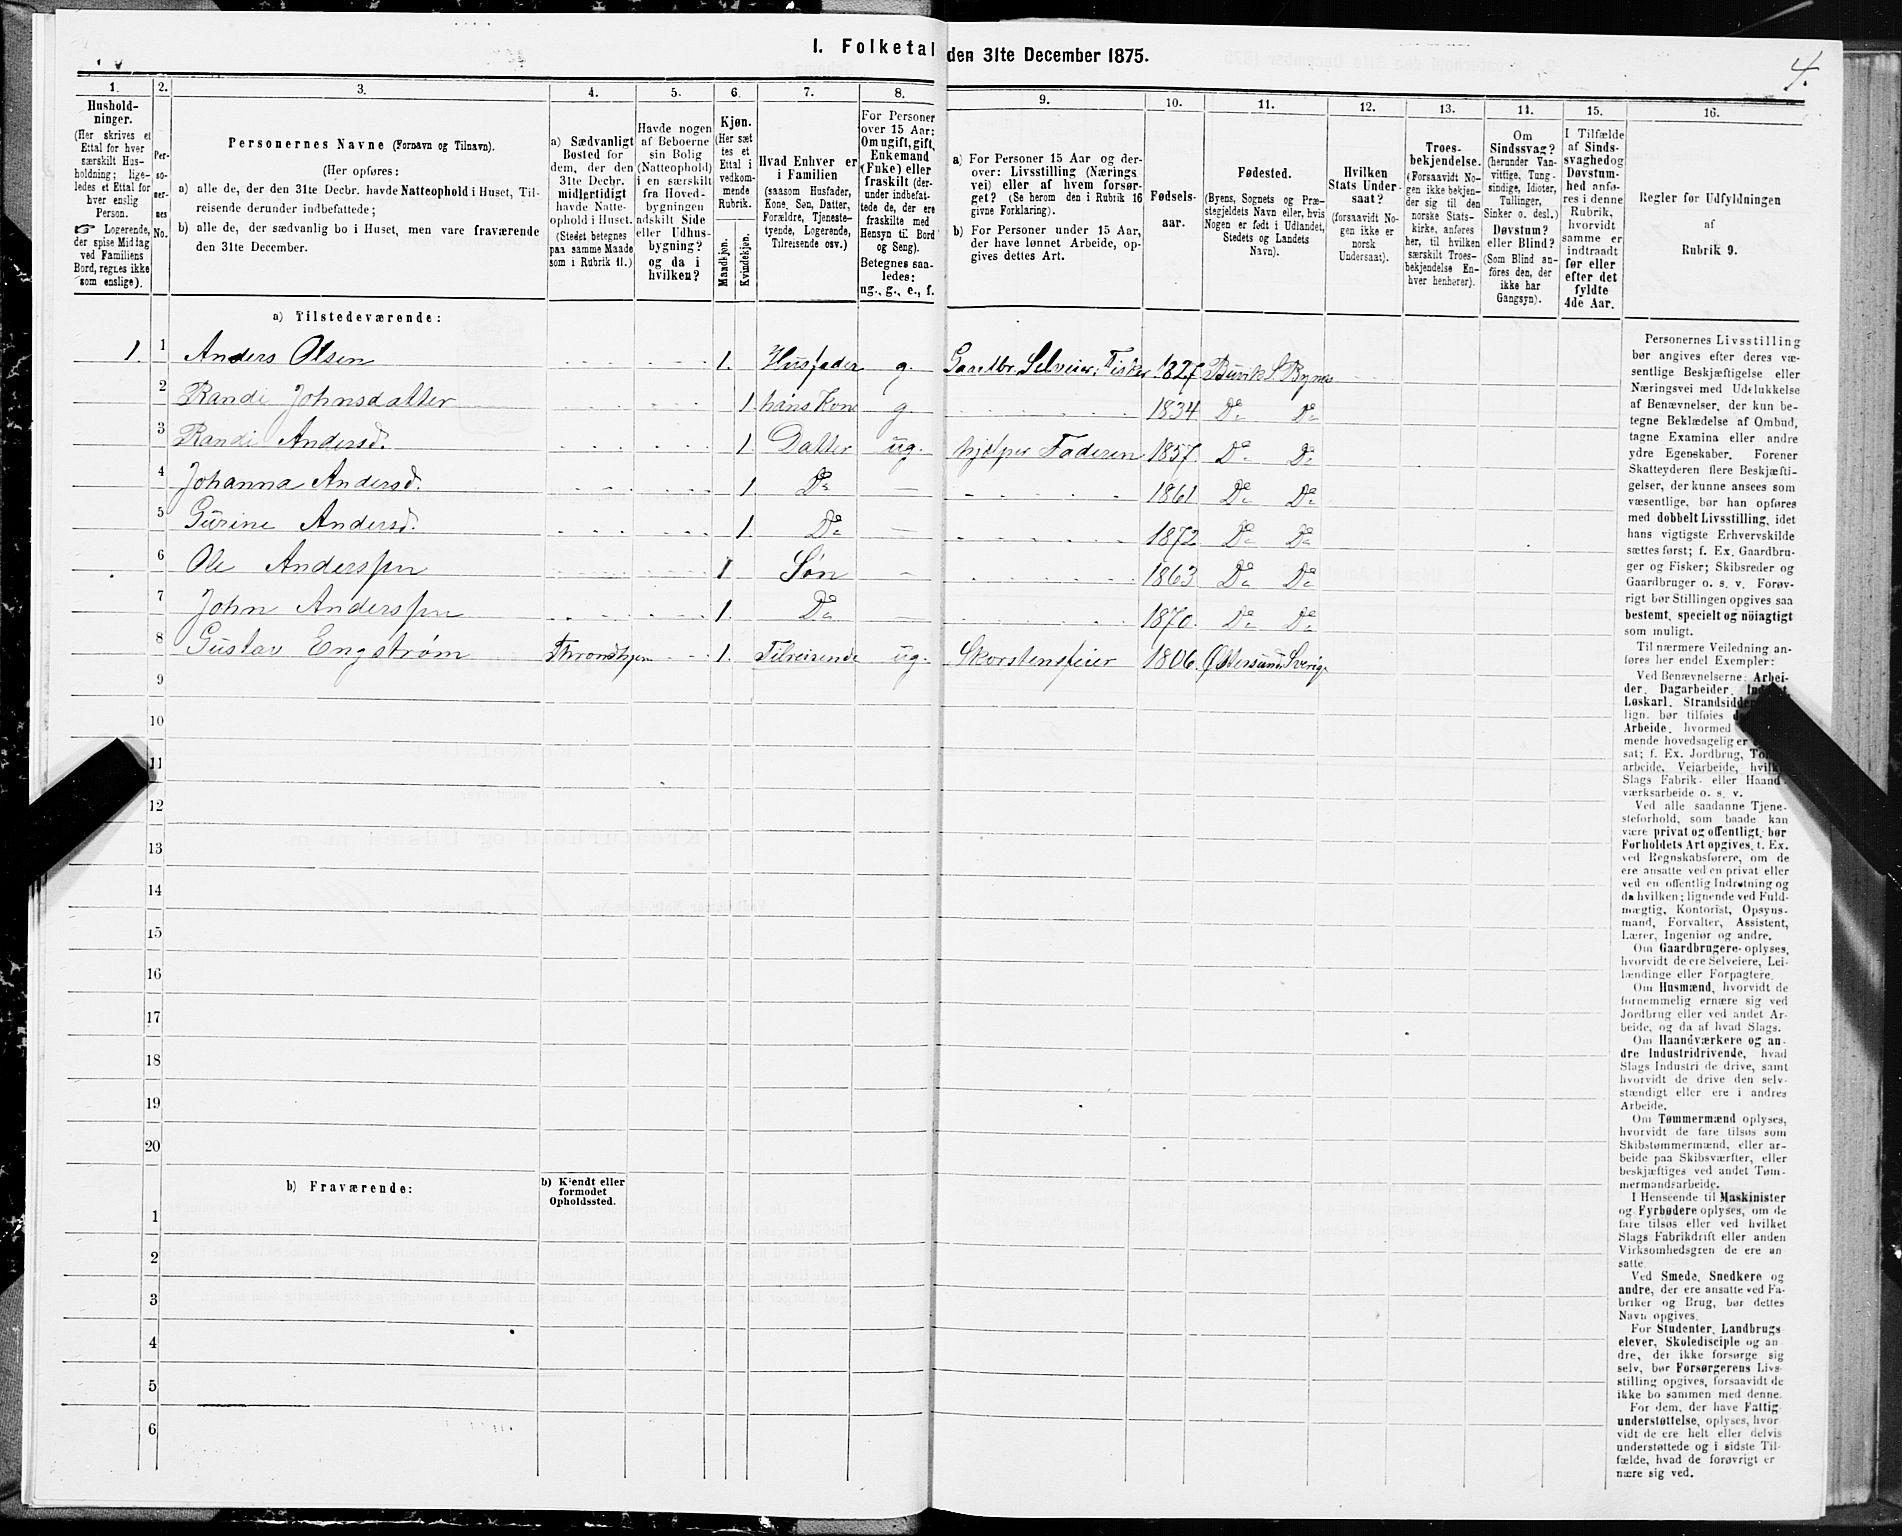 I. Folketal den 31te December 1875.
4.
1.
Hushold-
ninger.
(Her skrives et
Ettal for hver
særskilt Hus-
holdning; lige-
ledes et Ettal for
hver enslig
Person.
☞ Logerende,
der spise Middag
ved Familiens
Bord, regnes ikke
som enslige).
2.
Per-
so-
ner-
nes
No.
3.
Personernes Navne (Fornavn og Tilnavn).
(Her opføres:
a) alle de, der den 31te Decbr. havde Natteophold i Huset, Til-
reisende derunder indbefattede;
b) alle de, der sædvanlig bo i Huset, men vare fraværende
den 31te December.
4.
a) Sædvanligt
Bosted for
dem, der den
31te Decbr.
midlertidigt
havde Natte-
ophold i Huset.
(Stedet betegnes
paa samme Maade
som i Rubrik 11.)
5.
Havde nogen
af Beboerne
sin Bolig
(Natteophold)
i en særskilt
fra Hoved-
bygningen
adskilt Side
eller Udhus-
bygning?
og da i
hvilken?
6.
Kjøn.
(Her sæt
tes et
Ettal i
vedkom-
mende
Rubrik.
Mandkjøn.
Kvindekjøn.
7.
Hvad Enhver er
i Familien
(saasom Husfader,
Kone, Søn, Datter,
Forældre, Tjeneste-
tyende, Logerende,
Tilreisende osv.)
8.
For Personer
over 15 Aar:
Om ugift, gift,
Enkemand
(Enke) eller
fraskilt (der-
under indbefat-
tede de, der ere
fraskilte med
Hensyn til Bord
og Seng).
Betegnes saa-
ledes:
ug., g., e., f.
9.
a) For Personer 15 Aar og der-
over: Livsstilling (Nærings
vei) eller af hvem forsør-
get? (Se herom den i Rubrik 16
givne Forklaring).
b) For Personer under 15 Aar,
der have lønnet Arbeide, op-
gives dettes Art.
10.
Fødsels-
aar.
11.
Fødested.
(Byens, Sognets og Præ-
stegjeldets Navn eller, hvis
Nogen er født i Udlandet,
Stedets og Landets
Navn).
12.
Hvilken
Stats Under-
saat?
(forsaavidt No-
gen ikke er
norsk
Undersaat).
13.
Troes-
bekjendelse.
(Forsaavidt No-
gen ikke bekjen-
der sig til den
norske Stats-
kirke, anføres
her, til hvilken
særskilt Troes-
bekjendelse En-
hver henhører).
14.
Om
Sindssvag?
(herunder Van-
vittige, Tung-
sindige, Idioter,
Tullinger,
Sinker o. desl.)
Døvstum?
eller Blind?
(Som Blind an-
føres den, der
ikke har
Gangsyn).
15.
I Tilfælde
af Sinds-
svaghed og
Døvstum-
hed anfø-
res i denne
Rubrik,
hvorvidt
samme er
indtraadt
før eller
efter det
fyldte
4de Aar.
16.
Regler for Udfyldningen
af
Rubrik 9.
a) Tilstedeværende:
1. 1 Anders Olsen 1. Husfader g. Gaardbr. Selveier, Fisker 1827 Buvik S Bynes
2 Randi Johnsdatter 1 hans Kone g. 1834 Do Do
3 Randi Andersd. 1 Datter ug. hjelper Faderen 1857 Do Do
4 Johanna Andersd. 1 Do 1861 Do Do
5 Gurine Andersd. 1 Do 1872 Do Do
6 Ole Anderssen 1 Søn 1863 Do Do
7 John Anderssen 1. Do 1870. Do Do
8 Gustav Engstrøm Throndhjem 1. Tilreisende ug. Skorstensfeier 1806. Østersund Sverig
9
10
11
12
13
14
15
16
17
18
19
20
b) Fraværende:
b) Kjendt eller
formodet
Opholdssted.
1
2
3
4
5
6
Personernes Livsstilling
bør angives efter deres væ-
sentlige Beskjæftigelse eller
Næringsvei med Udelukkelse
af Benævnelser, der kun be-
tegne Beklædelse af Ombud,
tagne Examina eller andre
ydre Egenskaber. Forener
Skatteyderen flere Beskjæfti-
gelser, der kunne ansees som
væsentlige, bør han opføres
med dobbelt Livsstilling, idet
hans vigtigste Erhvervskilde
sættes først; f. Ex. Gaardbru-
ger og Fisker; Skibsreder og
Gaardbruger o. s. v. Forøv-
rigt bør Stillingen opgives saa
bestemt, specielt og nöiagtigt
som muligt.
Til nærmere Veiledning an-
føres her endel Exempler:
Ved Benævnelserne: Arbei-
der, Dagarbeider,
Løskarl, Strandsidder
lign. bør tilføies
Arbeide, hvormed
mende hovedsagelig er
sat; f. Ex. Jordbrug,
arbeide, Veiarbeide,
Slags Fabrik- eller Haand-
værksarbeide o. s. v.
Ved alle saadanne Tjene-
steforhold, som baade kan
være privat og offentligt, bør
Forholdets Art opgives, f. Ex.
ved Regnskabsførere, om de
ere ansatte ved en privat eller
ved en offentlig Indretning og
da hvilken; lignende ved Fuld-
mægtig, Kontorist, Opsyns-
mand, Forvalter, Assistent,
Lærer, Ingeniør og andre.
Om Gaardbrugere oplyses,
hvorvidt de ere Selveiere, Lei-
lændinge eller Forpagtere.
Om Husmænd, hvorvidt de
fornemmelig ernære sig ved
Jordbrug eller ved andet Ar-
beide, og da af hvad Slags.
Om Haandværkere og an-
dre Industridrivende, hvad
Slags Industri de drive, samt
hvorvidt de drive den selv-
stændigt eller ere i andres
Arbeide.
Om Tømmermænd oplyses,
hvorvidt de fare tilsøs som
Skibstømmermænd, eller ar-
beide paa Skibsværfter, eller
beskjæftiges ved andet Tøm-
mermandsarbeide.
I Henseende til Maskinister
og Fyrbødere oplyses, om de
fare tilsøs eller ved hvilket
Slags Fabrikdrift eller anden
Virksomhedsgren de ere an-
satte.
Ved Smede, Snedkere og
andre, der ere ansatte ved Fa-
briker og Brug, bør dettes
Navn opgives.
For Studenter, Landbrugs-
elever, Skoledisciple og an-
dre, der ikke forsørge sig
selv, bør Forsørgerens Livs-
stilling opgives, forsaavidt de
ikke bo sammen med denne.
For dem, der have Fattig-
understøttelse, oplyses, hvor-
vidt de ere helt eller delvis
understøttede og i sidste Til-
fælde, hvad de forøvrigt er
nære sig ved.